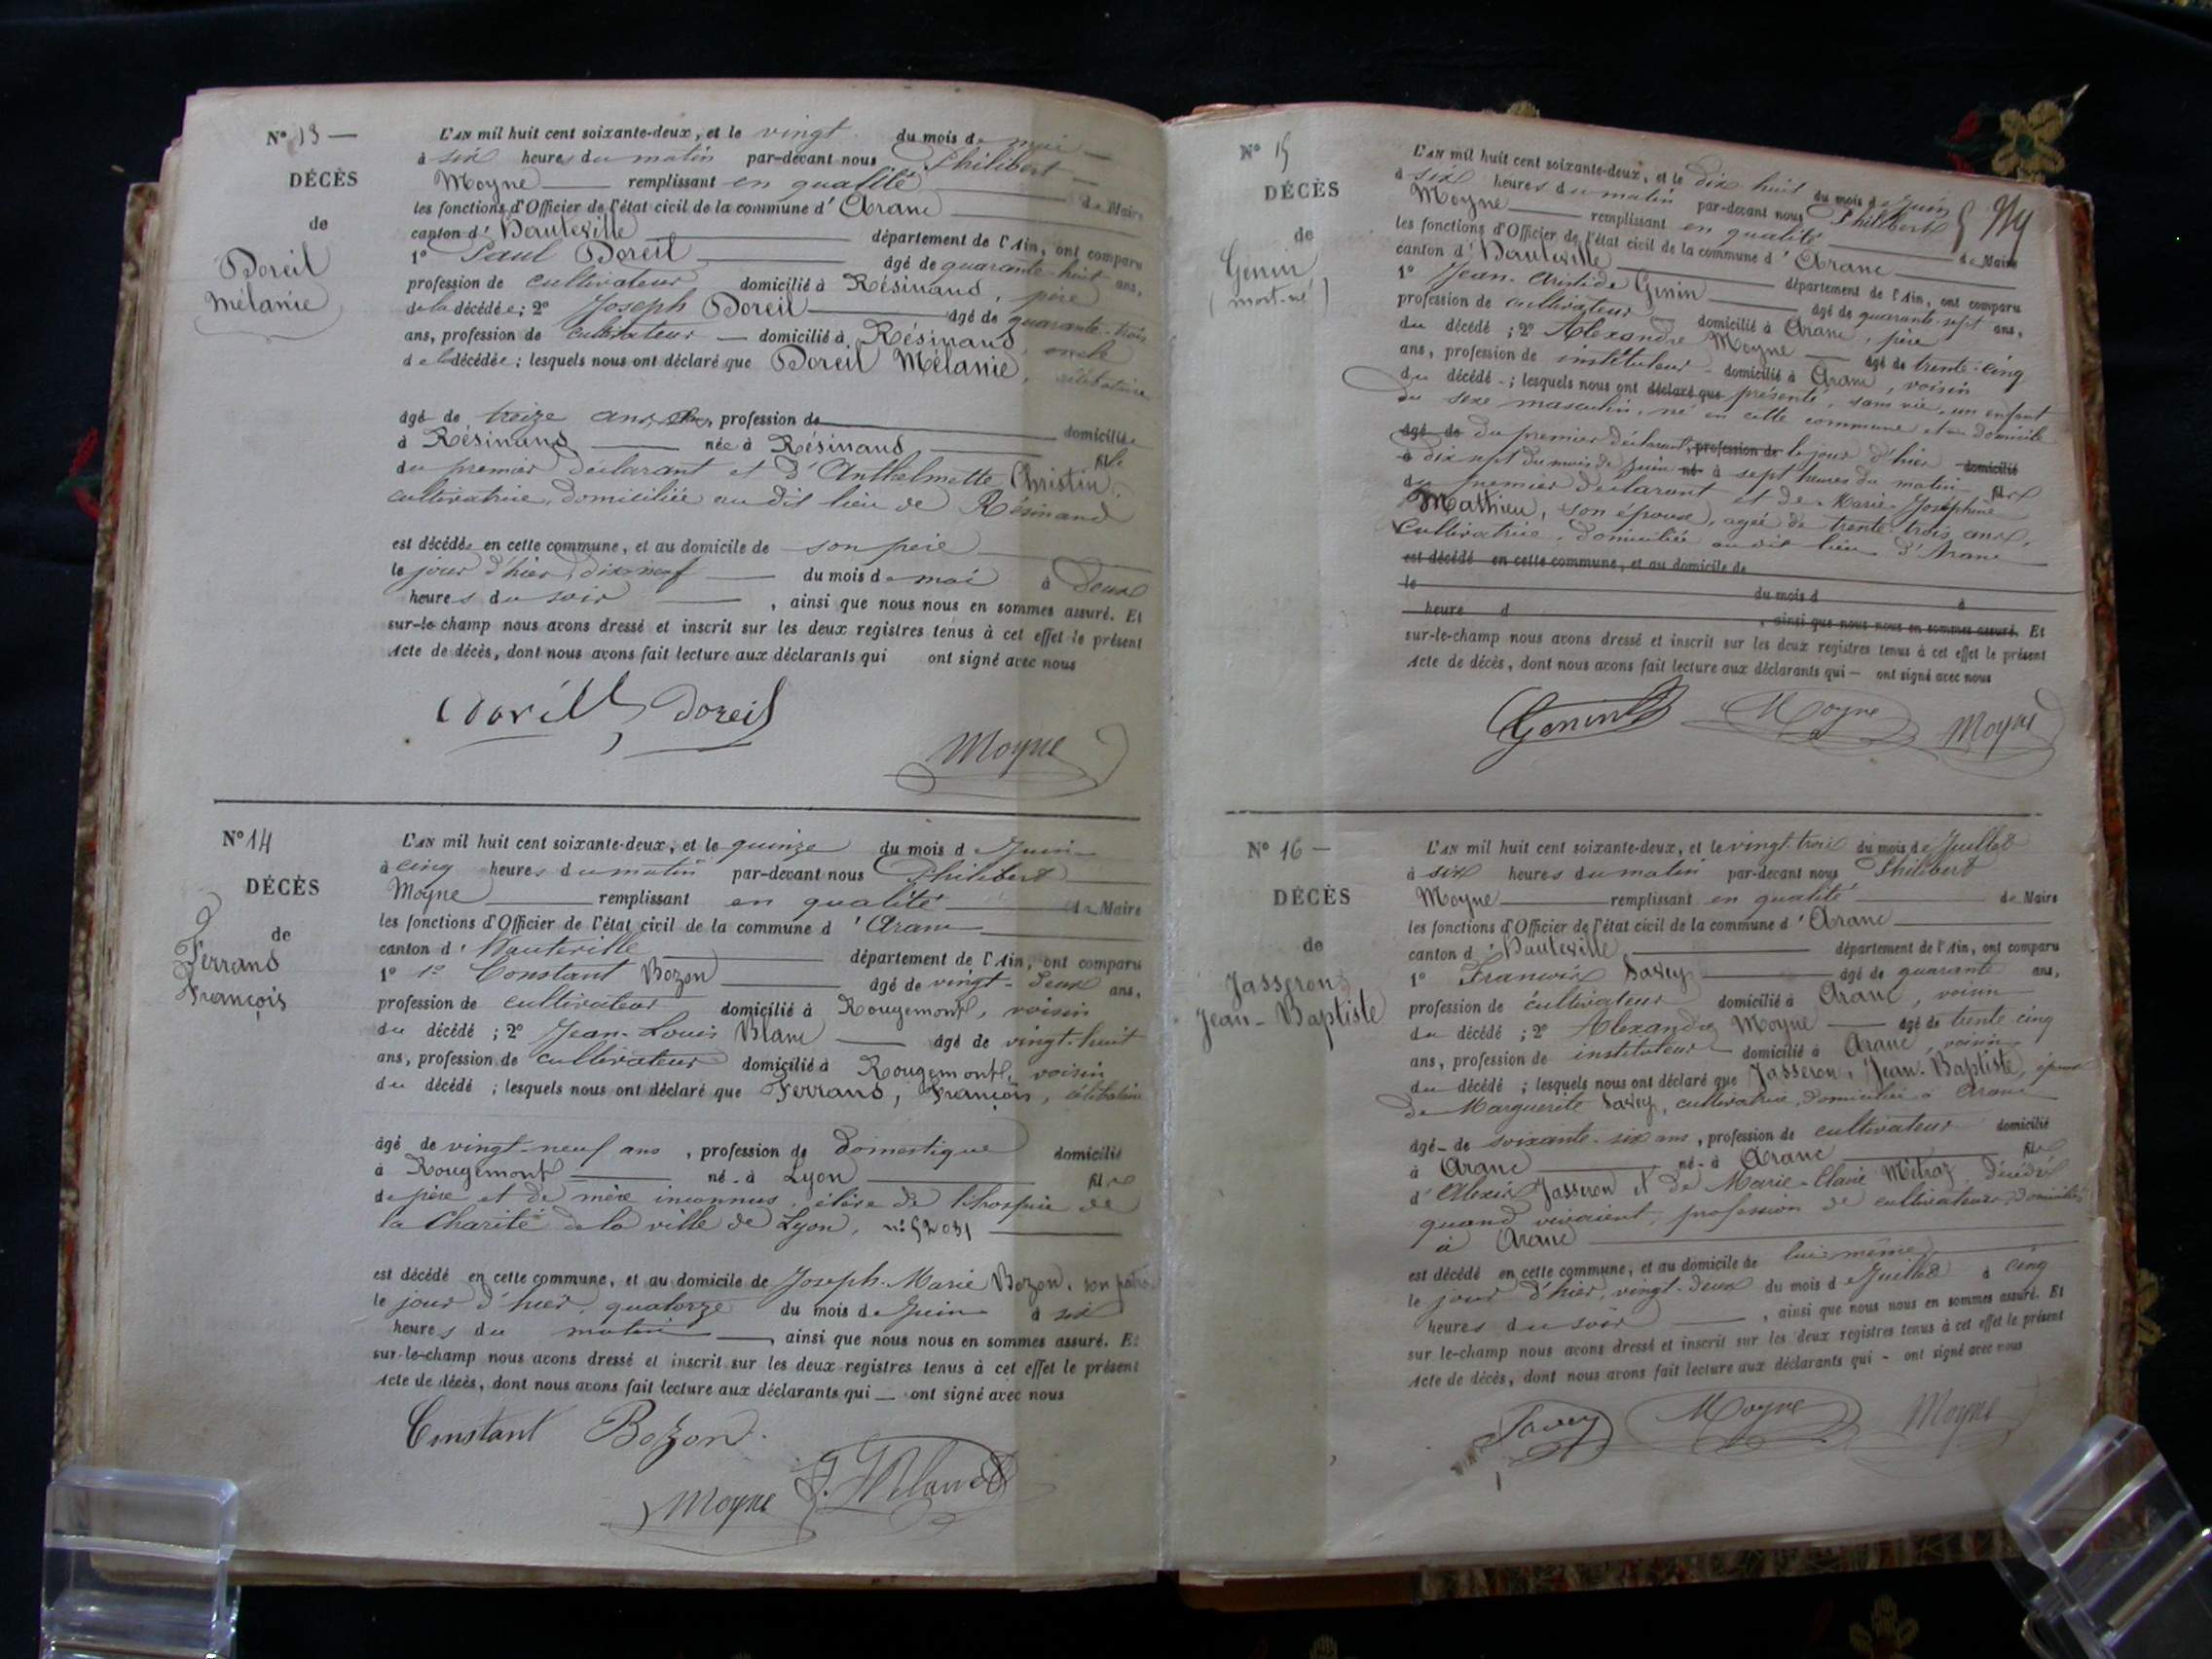 N° 13 —
DÉCÈS
de
Doreil
Mélanie
L'AN mil huit cent soixante-deux, et le vingt du mois de mai —
à six heures du matin par-devant nous Philibert —
Moyne — remplissant en qualité — de Maire
les fonctions d'Officier de l'état civil de la commune d' Aranc —
canton d' Hauteville — département de l'Ain, ont comparu
1° Paul Doreil — âgé de quarante-huit ans,
profession de cultivateur domicilié à Résinand, père
de la décédée; 2° Joseph Doreil — âgé de quarante-trois
ans, profession de cultivateur — domicilié à Résinand, oncle
de la décédée; lesquels nous ont déclaré que Doreil Mélanie, célibataire
âgé de treize ans, profession de — domiciliée
à Résinand — née à Résinand — fille
du premier déclarant et d'Anthelmette Christin,
cultivatrice, domiciliée au dit lieu de Résinand
est décédée en cette commune, et au domicile de son père —
le jour d'hier, dix-neuf — du mois de mai à deux
heures du soir —, ainsi que nous nous en sommes assuré. Et
sur-le-champ nous avons dressé et inscrit sur les deux registres tenus à cet effet le présent
Acte de décès, dont nous avons fait lecture aux déclarants qui ont signé avec nous
Doreil
Moyne
N° 14
DÉCÈS
de
Ferrand
François
L'AN mil huit cent soixante-deux, et le quinze du mois de Juin —
à cinq heures du matin par-devant nous Philibert —
Moyne — remplissant en qualité — de Maire
les fonctions d'Officier de l'état civil de la commune d' Aranc —
canton d' Hauteville — département de l'Ain, ont comparu
1° 1° Constant Bozon — âgé de vingt-deux ans,
profession de cultivateur domicilié à Rougemont, voisin
du décédé; 2° Jean-Louis Blanc — âgé de vingt-huit
ans, profession de cultivateur domicilié à Rougemont, voisin
du décédé; lesquels nous ont déclaré que Ferrand, François, célibataire
âgé de vingt-neuf ans, profession de domestique domicilié
à Rougemont — né à Lyon — fils
de père et de mère inconnus, élève de l'hospice de
la Charité de la ville de Lyon, n° 52031 —
est décédé en cette commune, et au domicile de Joseph-Marie Bozon, son
le jour d'hier, quatorze du mois de Juin à six
heures du matin —, ainsi que nous nous en sommes assuré. Et
sur-le-champ nous avons dressé et inscrit sur les deux registres tenus à cet effet le présent
Acte de décès, dont nous avons fait lecture aux déclarants qui — ont signé avec nous
Constant Bozon
Moyne J. L Blanc
N° 15
DÉCÈS
de
Genin
(mort-né)
L'AN mil huit cent soixante-deux, et le dix huit du mois de Juin
à six heures du matin par-devant nous Philibert
Moyne — remplissant en qualité — de Maire
les fonctions d'Officier de l'état civil de la commune d' Aranc —
canton d' Hauteville — département de l'Ain, ont comparu
1° Jean-Aristide Genin — âgé de quarante-sept ans,
profession de cultivateur — domicilié à Aranc, père
du décédé; 2° Alexandre Moyne — âgé de trente-cinq
ans, profession de instituteur — domicilié à Aranc, voisin
du décédé; lesquels nous ont déclaré que présenté, sans vie, un enfant
du sexe masculin, né en cette commune et au domicile
âgé de du premier déclarant, profession de le jour d'hier domicilié
à dix sept du mois de Juin né à sept heures du matin fils
du premier déclarant et de Marie-Joséphine
Mathieu, son épouse, agée de trente-trois ans,
cultivatrice, domiciliée audit lieu d'Aranc
est décédé en cette commune, et au domicile de
le du mois d à
heure d, ainsi que nous nous en sommes assuré. Et
sur-le-champ nous avons dressé et inscrit sur les deux registres tenus à cet effet le présent
Acte de décès, dont nous avons fait lecture aux déclarants qui — ont signé avec nous
Genin Moyne Moyne
N° 16 —
DÉCÈS
de
Jasseron
Jean-Baptiste
L'AN mil huit cent soixante-deux, et le vingt-trois du mois de Juillet
à six heures du matin par-devant nous Philibert
Moyne — remplissant en qualité — de Maire
les fonctions d'Officier de l'état civil de la commune d' Aranc —
canton d' Hauteville — département de l'Ain, ont comparu
1° François Savey — âgé de quarante ans,
profession de cultivateur domicilié à Aranc, voisin
du décédé; 2° Alexandre Moyne — âgé de trente cinq
ans, profession de instituteur — domicilié à Aranc, voisin
du décédé; lesquels nous ont déclaré que Jasseron, Jean-Baptiste, époux
de Marguerite Savey, cultivatrice, domiciliée à Aranc
âgé de soixante-six ans, profession de cultivateur domicilié
à Aranc — né à Aranc — fils
d'Alexis Jasseron et de Marie-Claire Métraz, décédés
quand vivaient, profession de cultivateurs, domiciliés
à Aranc —
est décédé en cette commune, et au domicile de lui-même —
le jour d'hier, vingt-deux du mois de Juillet à cinq
heures du soir —, ainsi que nous nous en sommes assuré. Et
sur-le-champ nous avons dressé et inscrit sur les deux registres tenus à cet effet le présent
Acte de décès, dont nous avons fait lecture aux déclarants qui — ont signé avec nous
Savey Moyne Moyne